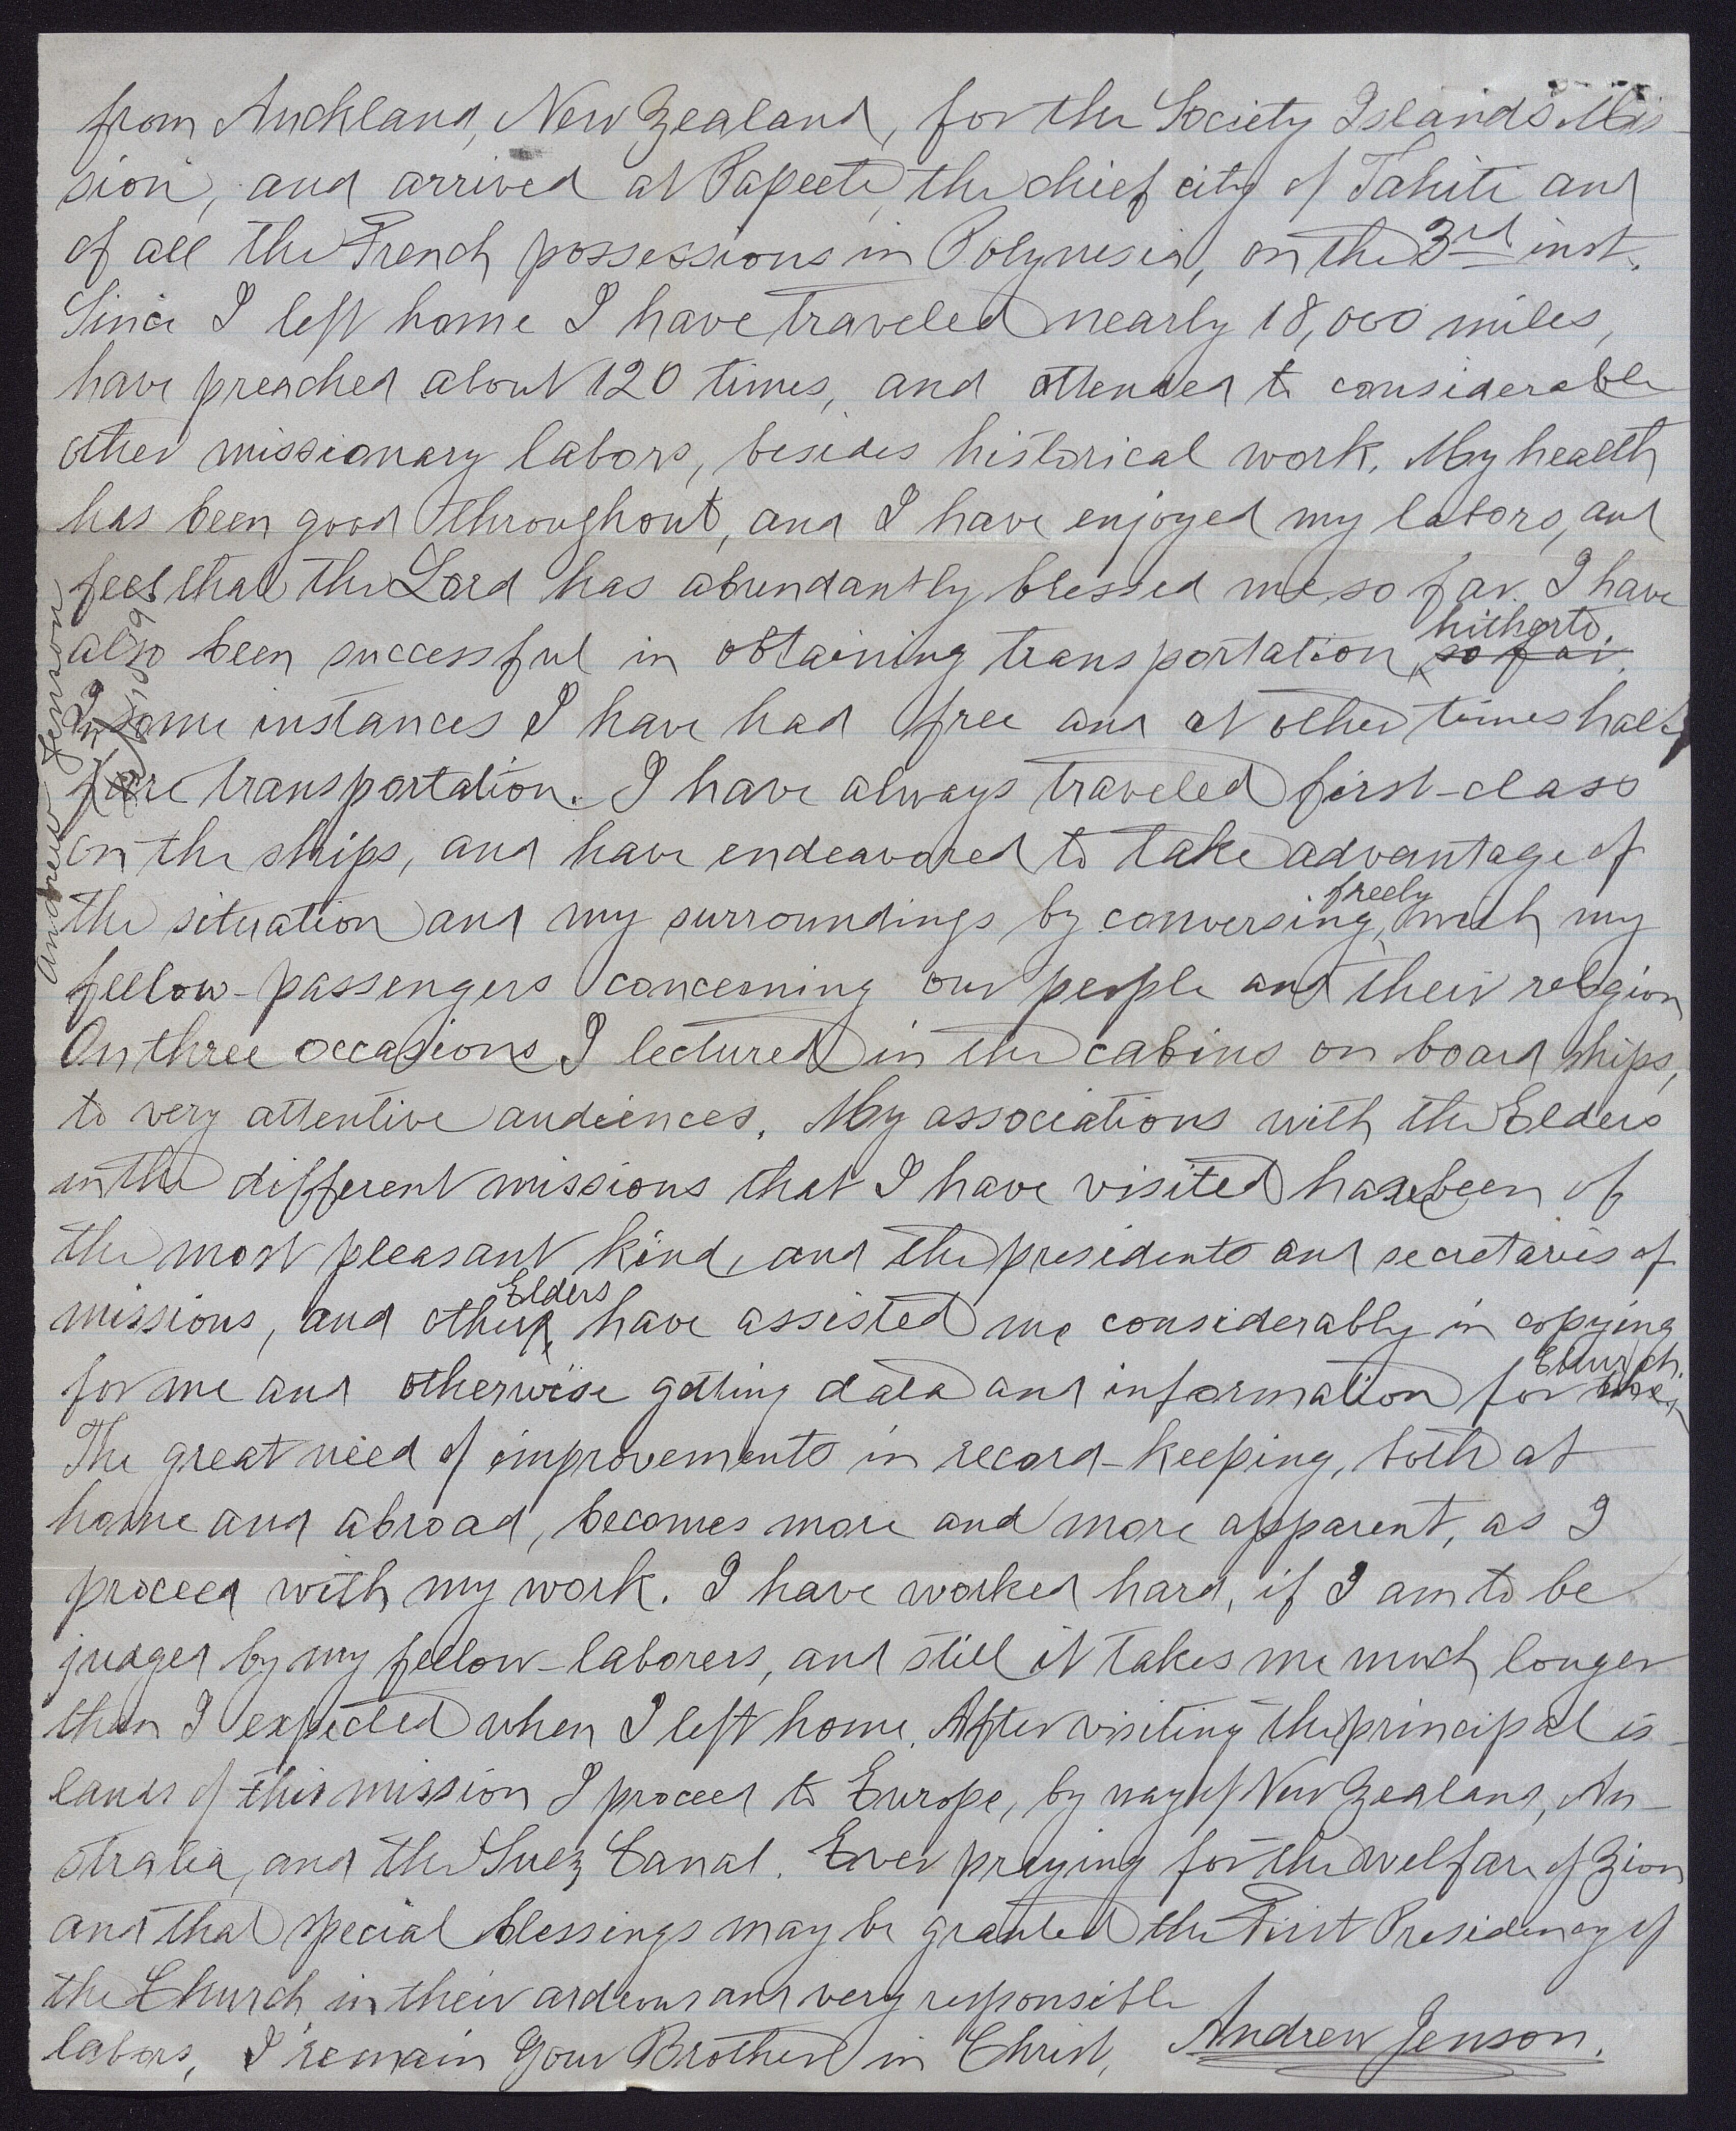 from Auckland, New Zealand, for the Society Islands Mis-
sion, and arrived at Papeete, the chief city of Tahiti and
of all the French possessions in Polynesia, on the 3rd inst.
Since I left home I have traveled nearly 18,000 miles,
have preached about 120 times, and attended to considerable
other missionary labors, besides historical work. My health
has been good throughout, and I have enjoyed my labors, and
feel that the Lord has abundantly blessed me so far. I have
hitherto.
also been successful in obtaining transportation so far.
In some instances I have had free and at other times half
fare transportation. I have always traveled first-class
on the ships, and have endeavored to take advantage of
freely
the situation and my surroundings by conversing with my
fellow-passengers concerning our people and their religion
On three occasions I lectured in the cabins on board ships,
to very attentive audiences. My associations with the Elders
in the different missions that I have visited have been of
the most pleasant kind, and the presidents and secretaries of
Elders
missions, and other have assisted me considerably in copying
Church.
for me and otherwise getting data and information for
The great need of improvements in record-keeping, both at
home and abroad, becomes more and more apparent, as I
proceed with my work. I have worked hard, if I am to be
judged by my fellow-laborers, and still it takes me much longer
than I expected when I left home. After visiting the principal is-
lands of this mission I proceed to Europe, by way of New Zealand, Au-
stralia, and the Suez Canal. Ever praying for the welfare of Zion
and that special blessings may be granted the First Presidency of
the Church in their arduous and very responsible
labors, I remain Your Brother in Christ, Andrew Jenson.
Andrew Jenson